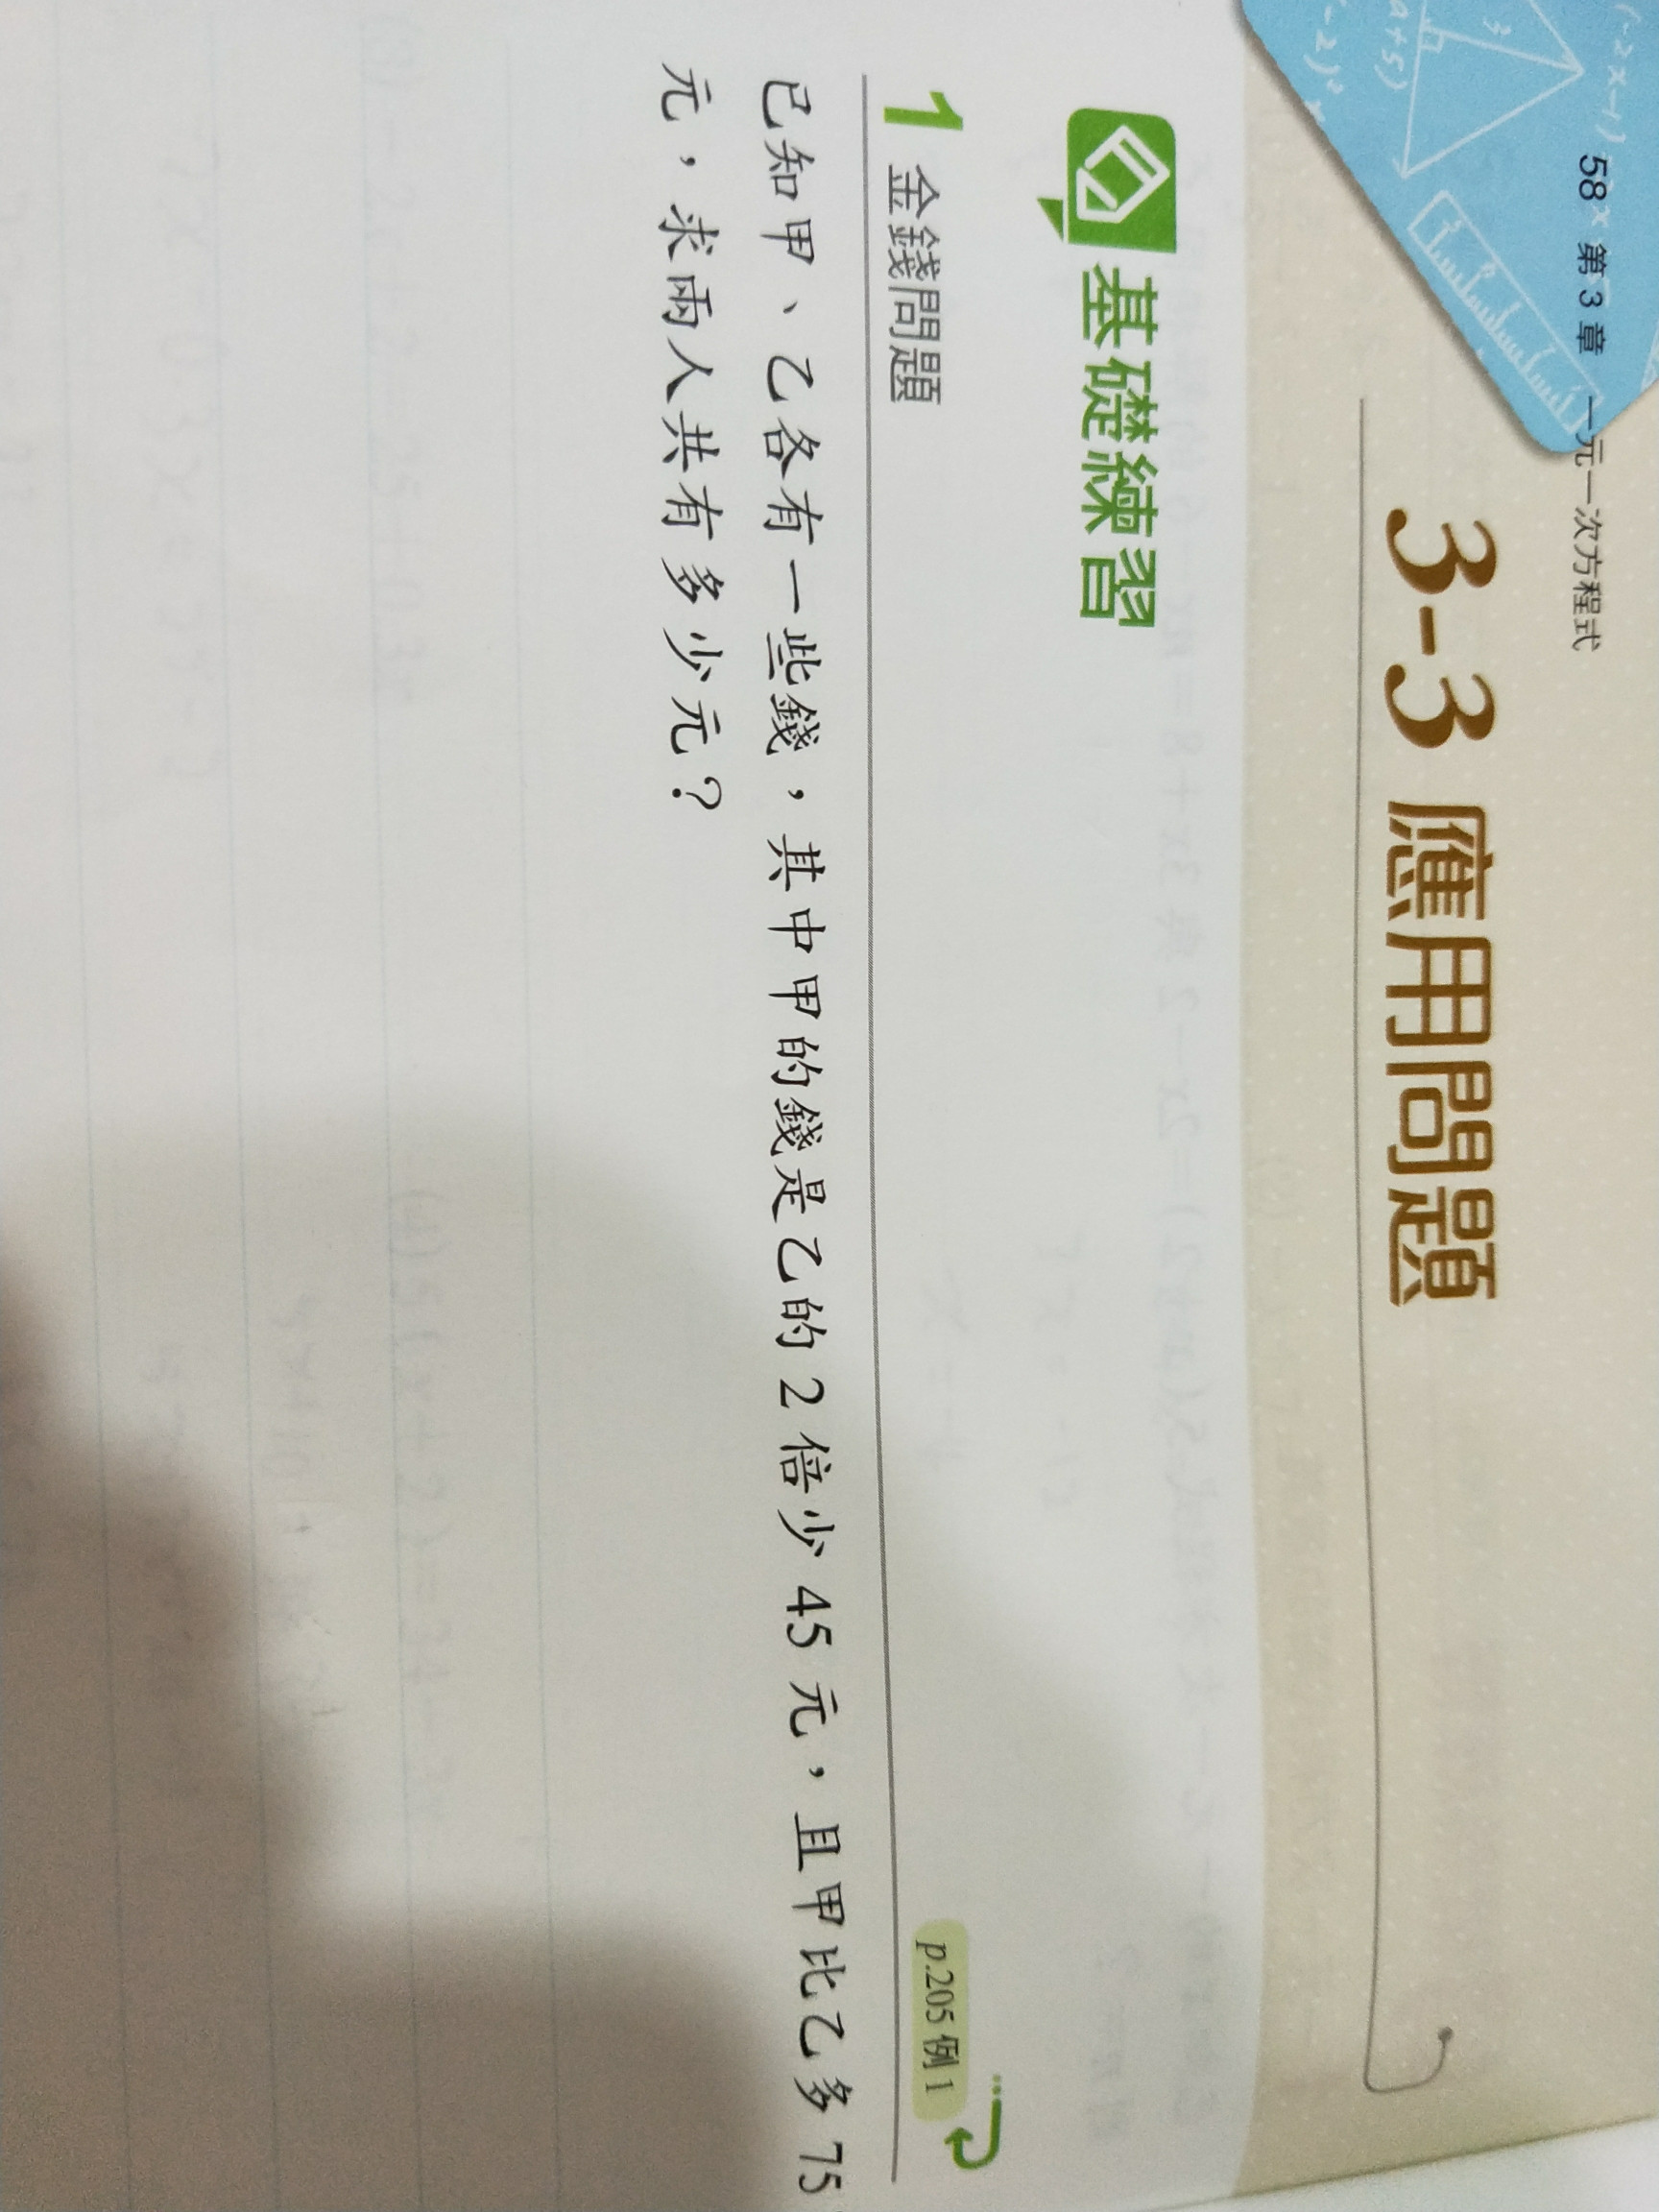 58 第 3 章 一元一次方程式
3-3 應用問題
基礎練習
1 金錢問題
p.205 例 1
已知甲、乙各有一些錢，其中甲的錢是乙的 2 倍少 45 元，且甲比乙多 75
元，求兩人共有多少元？